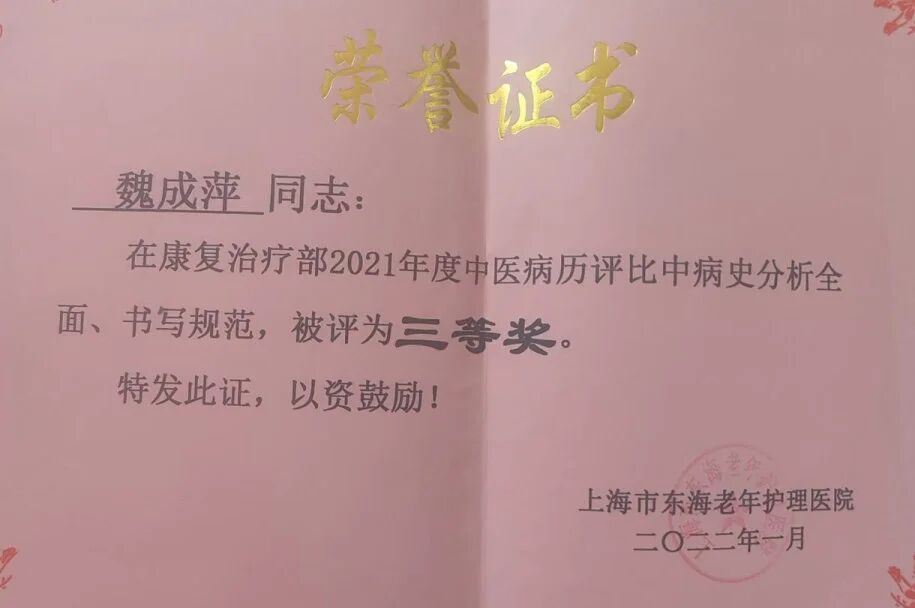 荣誉证书
魏成萍 同志：
在康复治疗部2021年度中医病历评比中病史分析全
面、书写规范，被评为三等奖。
特发此证，以资鼓励！
上海市东海老年护理医院
二〇二二年一月